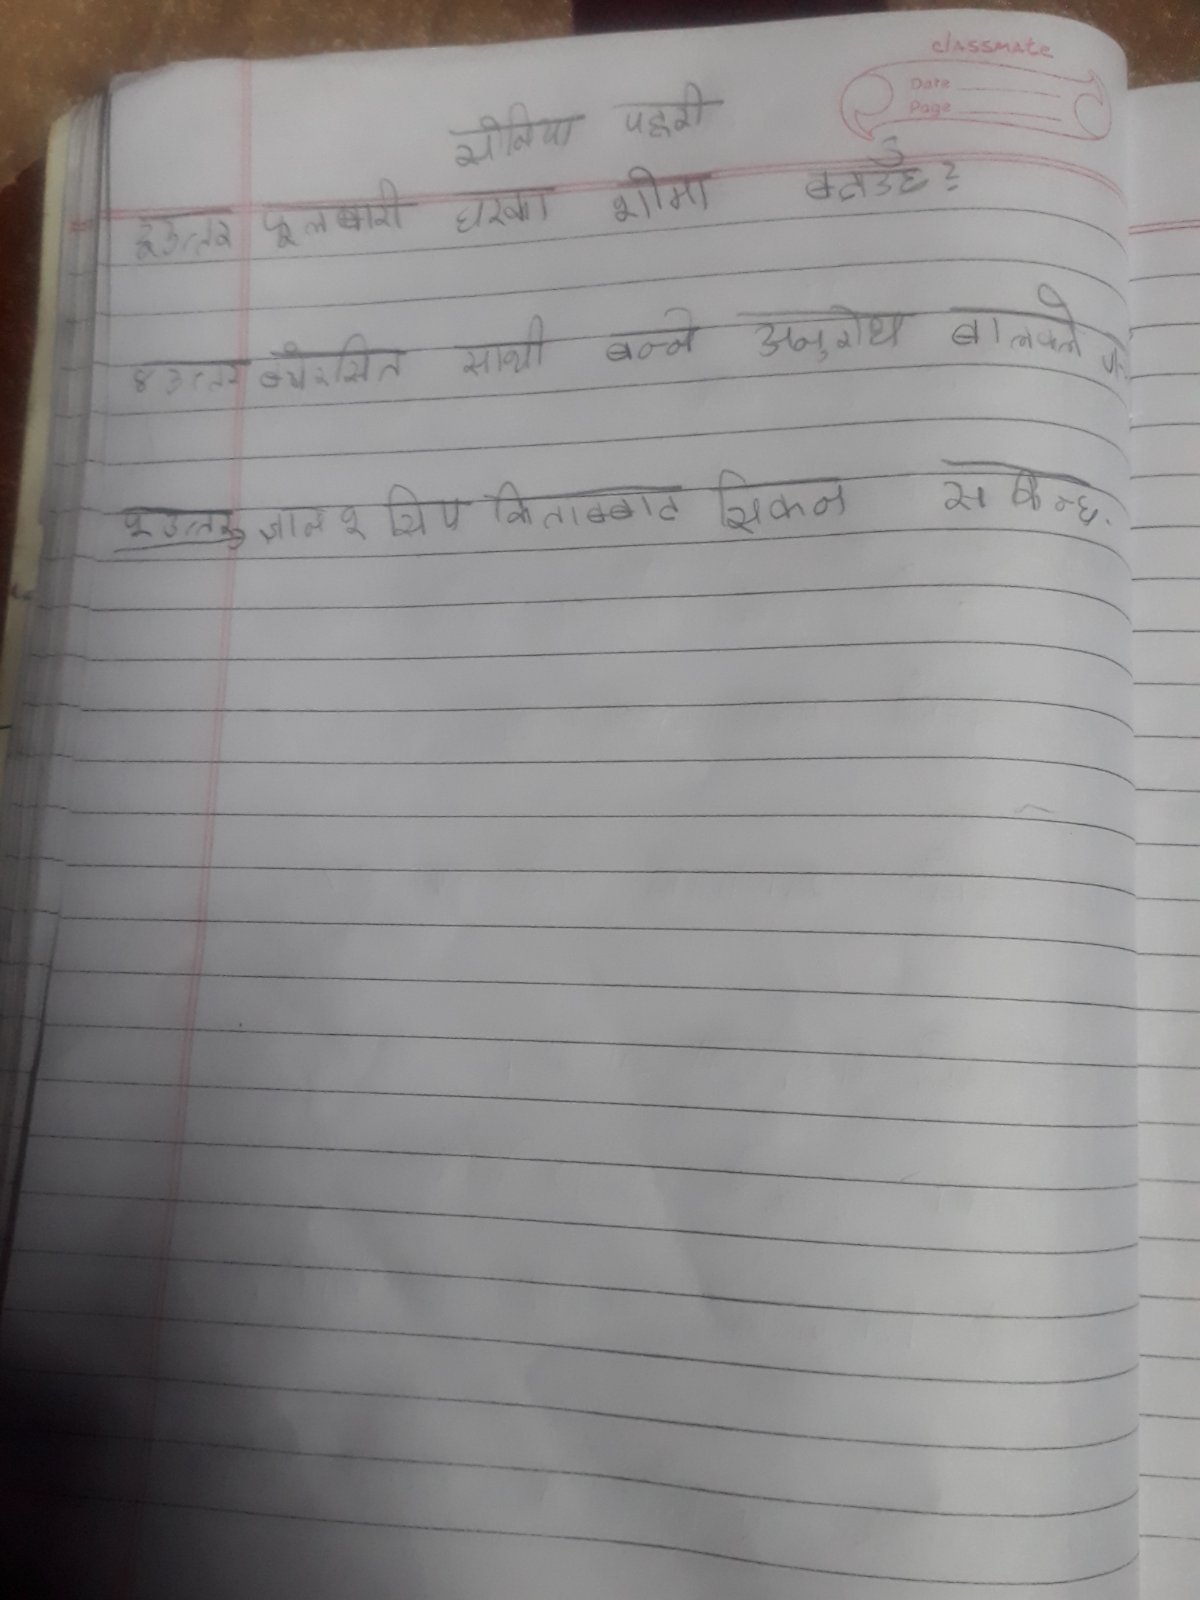 classmate
Date
Page
सोनिया पहरी
३ उत्तर फूलबारी घरका शोभा बनाउँछ?
४ उत्तर केरसित साथी बन्ने अनुरोध बालकले
५ उत्तर ज्ञान र सिप किताबबाट सिकन सकिन्छ.